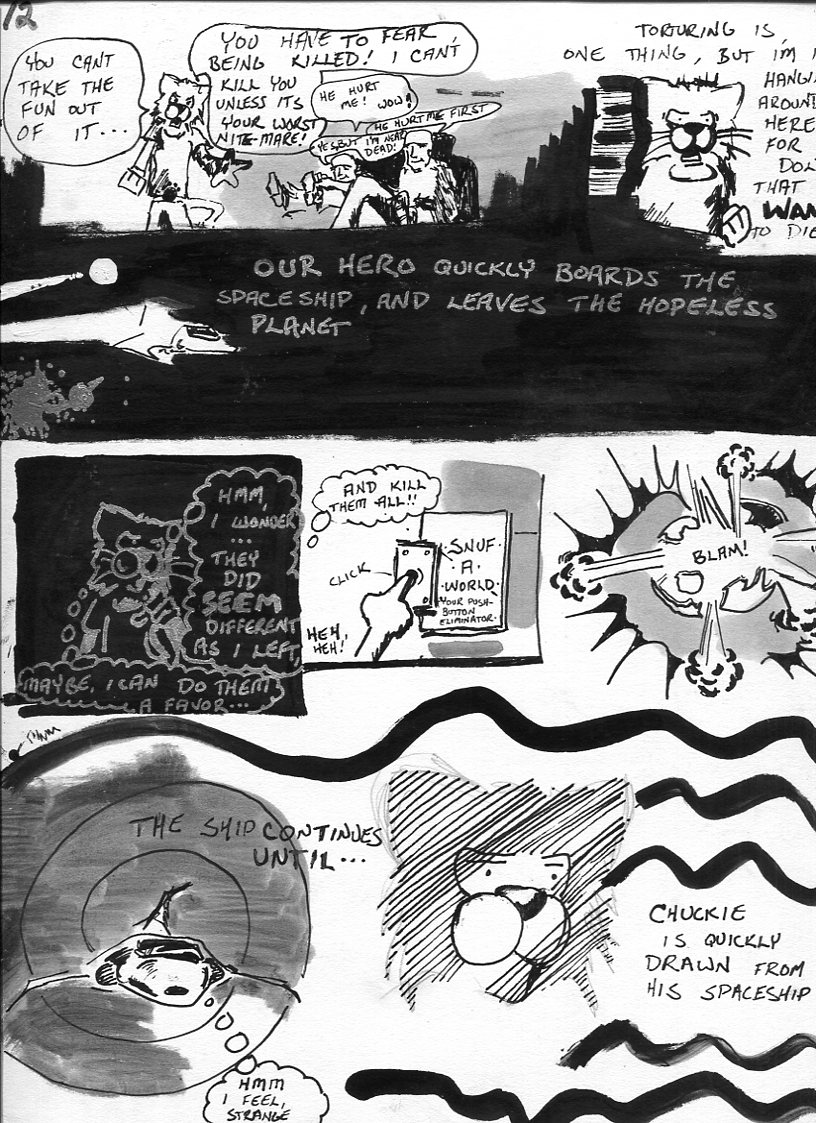 12
YOU CANT
TAKE THE
FUN OUT
OF IT...
YOU HAVE TO FEAR,
BEING KILLED! I CAN'T
KILL YOU
UNLESS ITS
YOUR WORST
NITE-MARE!
HE HURT
ME! WOW!
HE HURT ME FIRST
YES, BUT I'M NEAR
DEAD!
TORTURING IS,
ONE THING, BUT I'M
HANGI
AROUN
HERE
FOR
DOL
THAT
WAN
TO DIE
OUR HERO QUICKLY BOARDS THE
SPACESHIP, AND LEAVES THE HOPELESS
PLANET
HMM,
I WONDER
...
THEY
DID
SEEM
DIFFERENT
AS I LEFT,
MAYBE, I CAN DO THEM
A FAVOR...
AND KILL
THEM ALL!!
CLICK
HEH,
HEH!
SNUF.
A.
WORLD.
YOUR PUSH-
BOTTON
ELIMINATOR.
BLAM!
THE SHIP CONTINUES
UNTIL...
CHUCKIE
IS QUICKLY
DRAWN FROM
HIS SPACESHIP
HMM
I FEEL,
STRANGE